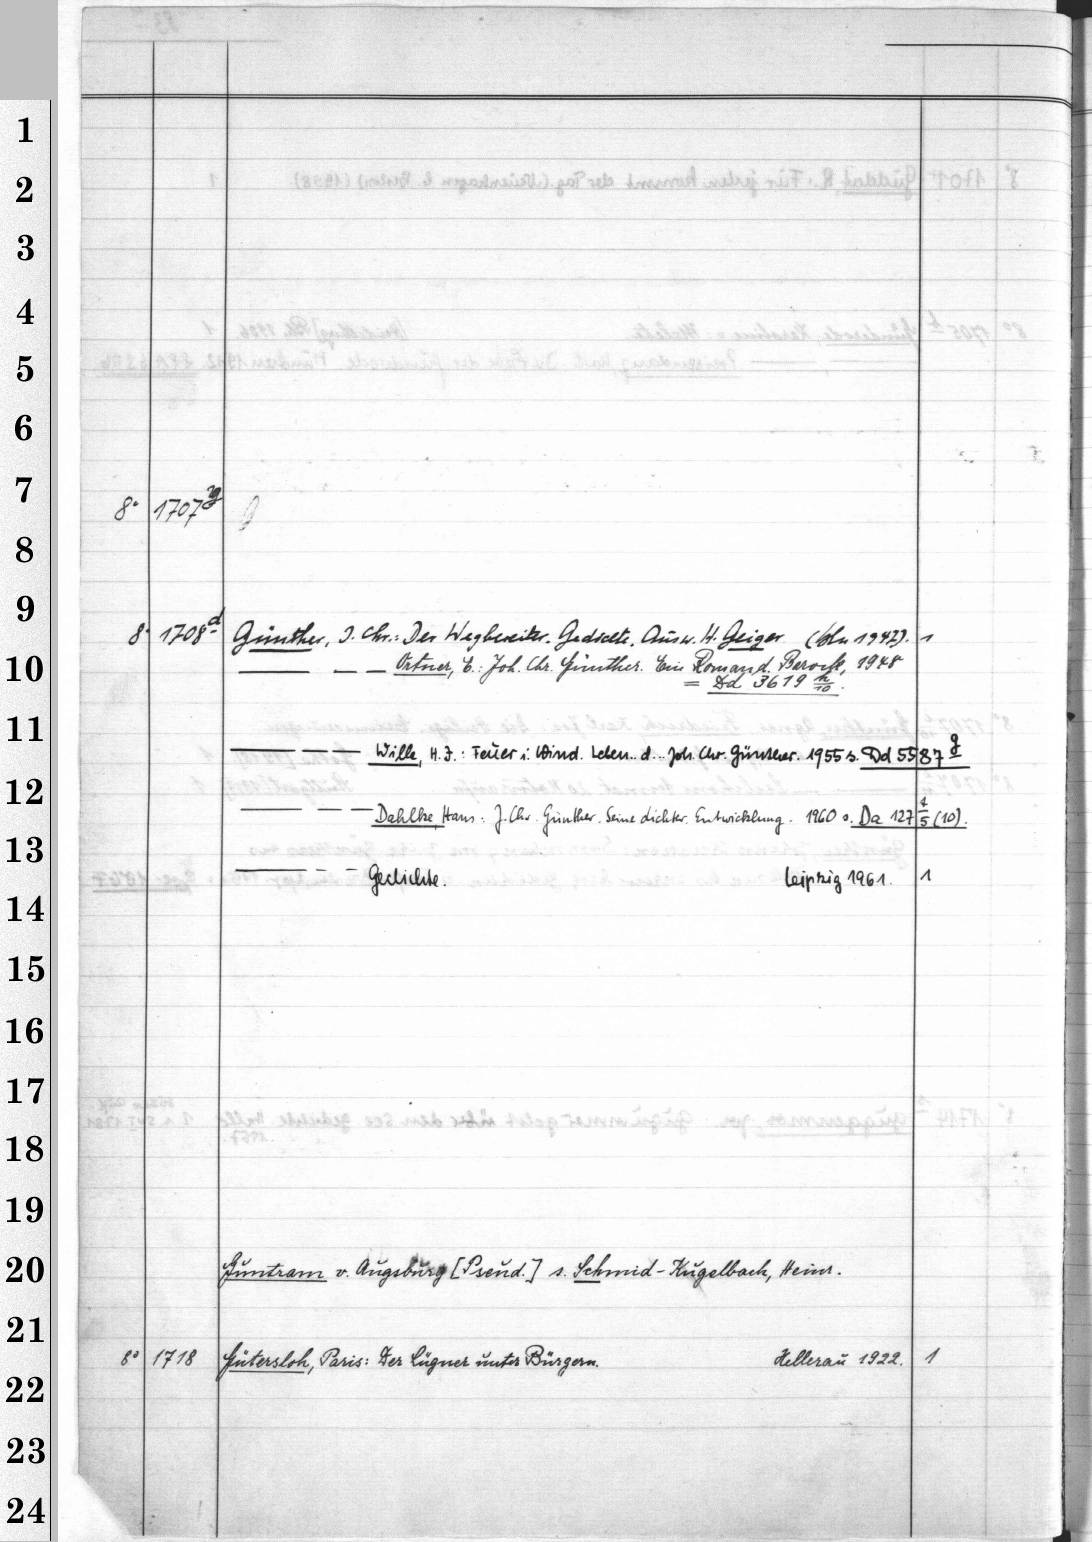 1
2
3
4
5
6
7
8° 1707 g
8
9
8° 1708 d Günther, J. Chr.: Der Wegbereiter. Gedichte. Ausw. H. Geiger (Köln 1947). 1
10
— — — Ortner, E.: Joh. Chr. Günther. Ein Roman d. Barock, 1948
= Dd 3619 h/10.
11
— — — Wille, H. J.: Feuer i. Wind. Leben d. Joh. Chr. Günther. 1955 s. Dd 5587 g
12
— — — Dahlke, Hans: J. Chr. Günther. Seine dichter. Entwicklung. 1960 s. Da 127 f/5 (10).
13
— — — Gedichte. Leipzig 1961. 1
14
15
16
17
18
19
20
Guntram v. Augsburg [Pseud.] s. Schmid-Kugelbach, Heinr.
21
8° 1718 Gütersloh, Paris: Der Lügner unter Bürgern. Hellerau 1922. 1
22
23
24